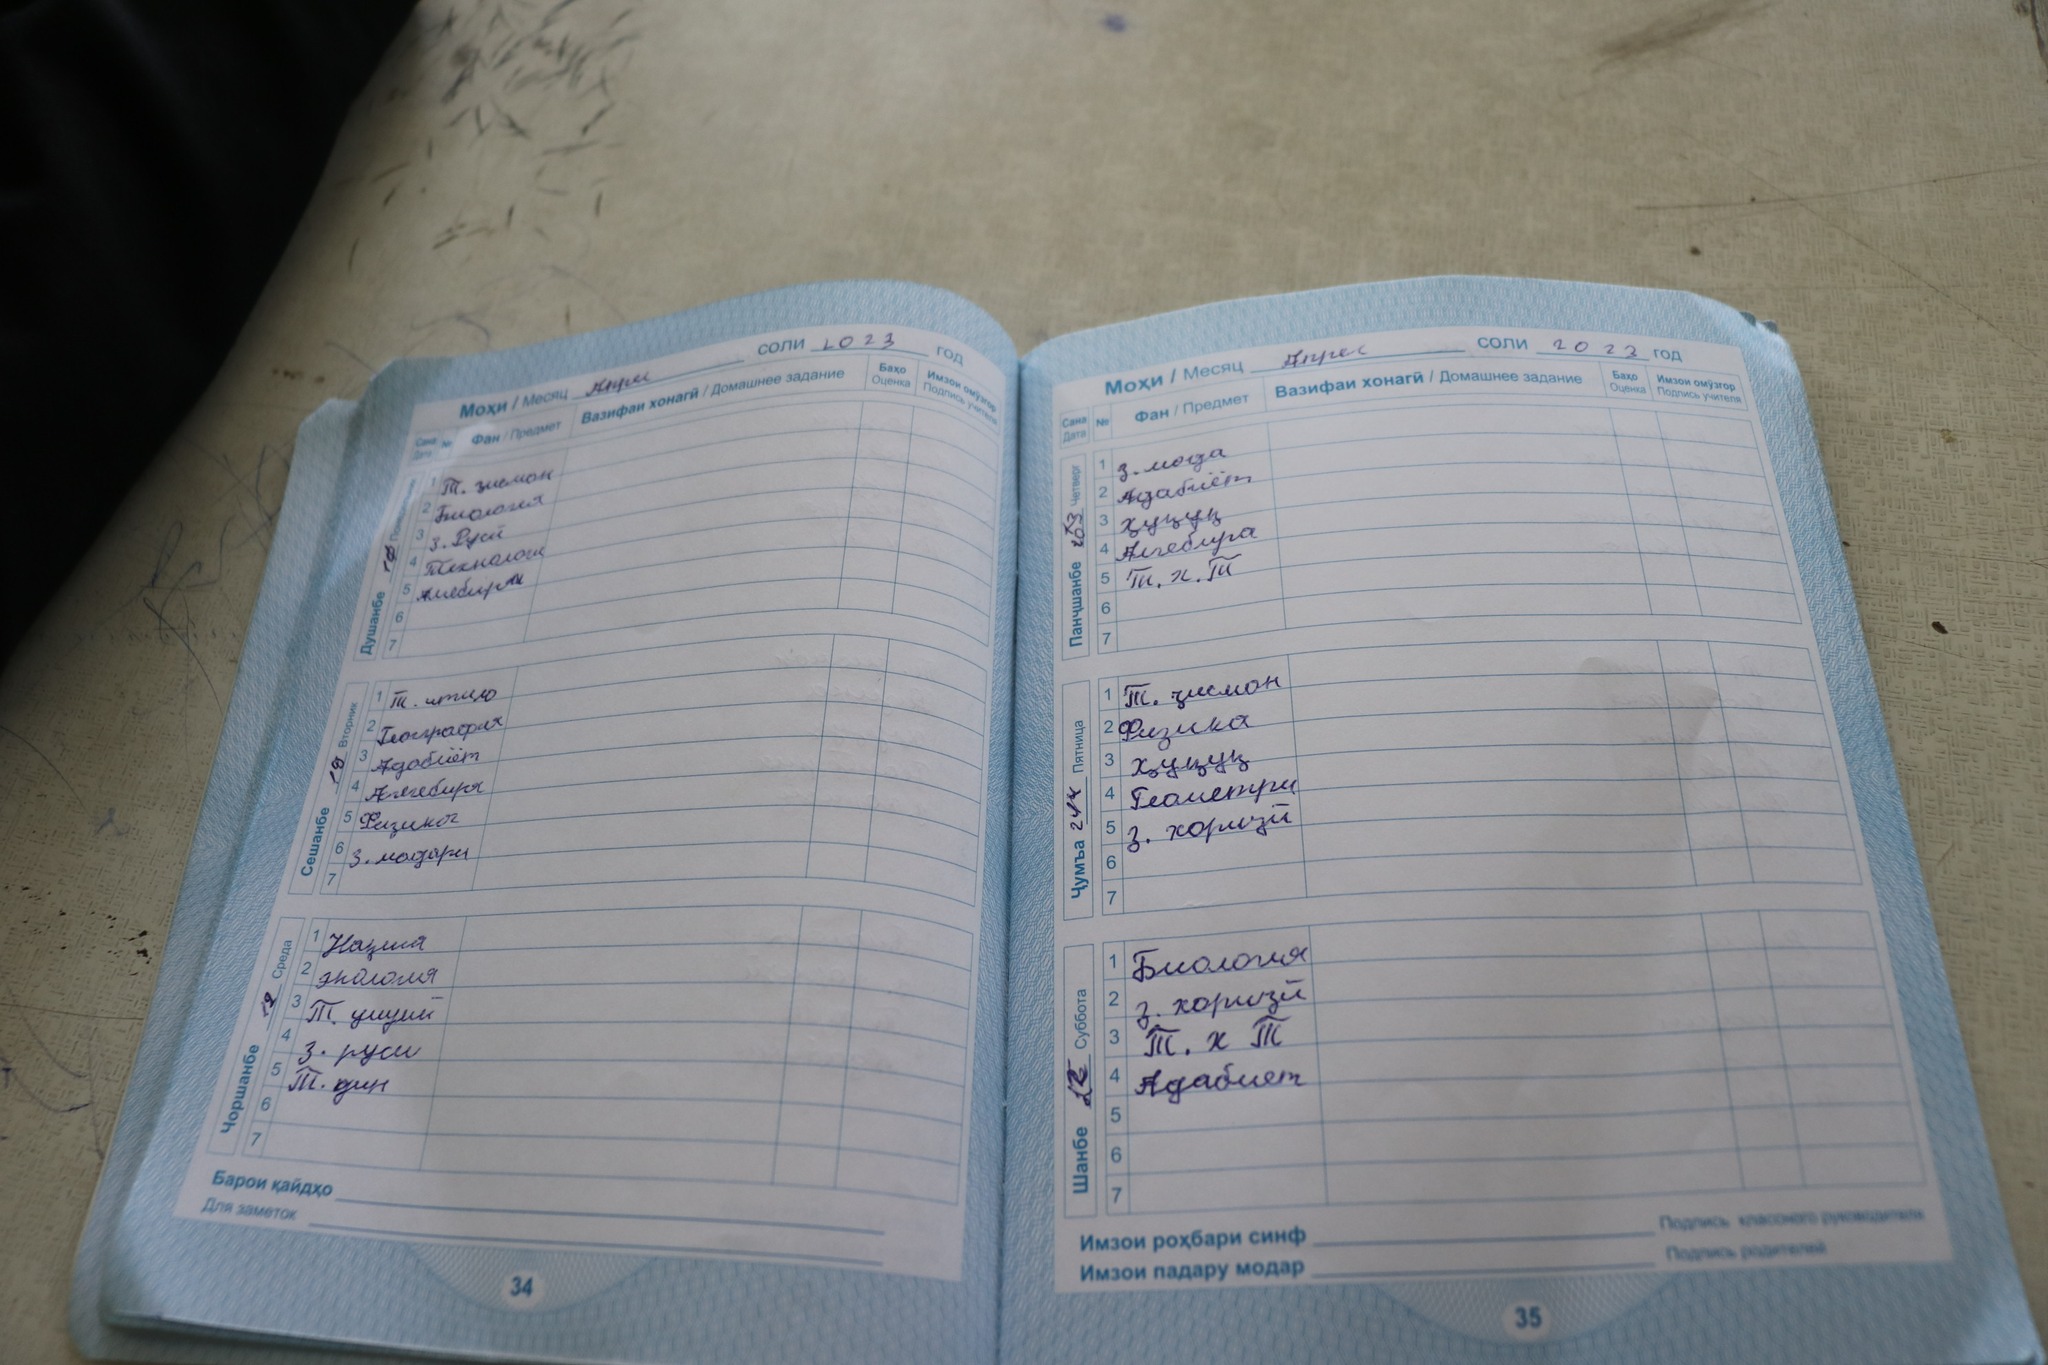 Моҳи / Месяц Апрел соли 2023 год
Сана Дата № Фан / Предмет Вазифаи хонагӣ / Домашнее задание Баҳо Оценка Имзои омӯзгор Подпись учителя
Душанбе
1 Т. ҷисмон
2 Биология
3 З. Русӣ
4 Технологи
5 Алгебира
6
7
Сешанбе Вторник
1 Т.
2 География
3 Адабиёт
4 Алгебира
5 Физика
6 З. модари
7
Чоршанбе Среда
1 Назмия
2 экология
3 Т.
4 З. руси
5 Т. дин
6
7
Барои қайдҳо
Для заметок
34
Моҳи / Месяц Апрел соли 2023 год
Сана Дата № Фан / Предмет Вазифаи хонагӣ / Домашнее задание Баҳо Оценка Имзои омӯзгор Подпись учителя
Панҷшанбе Четверг
1 З. мода
2 Адабиёт
3 Ҳуқуқ
4 Алгебира
5 Т. х. Т
6
7
Ҷумъа Пятница
1 Т. ҷисмон
2 Физика
3 Ҳуқуқ
4 Геометри
5 З. хориҷӣ
6
7
Шанбе Суббота
1 Биология
2 З. хориҷӣ
3 Т. х Т
4 Адабиет
5
6
7
Имзои роҳбари синф Подпись классного руководителя
Имзои падару модар Подпись родителей
35